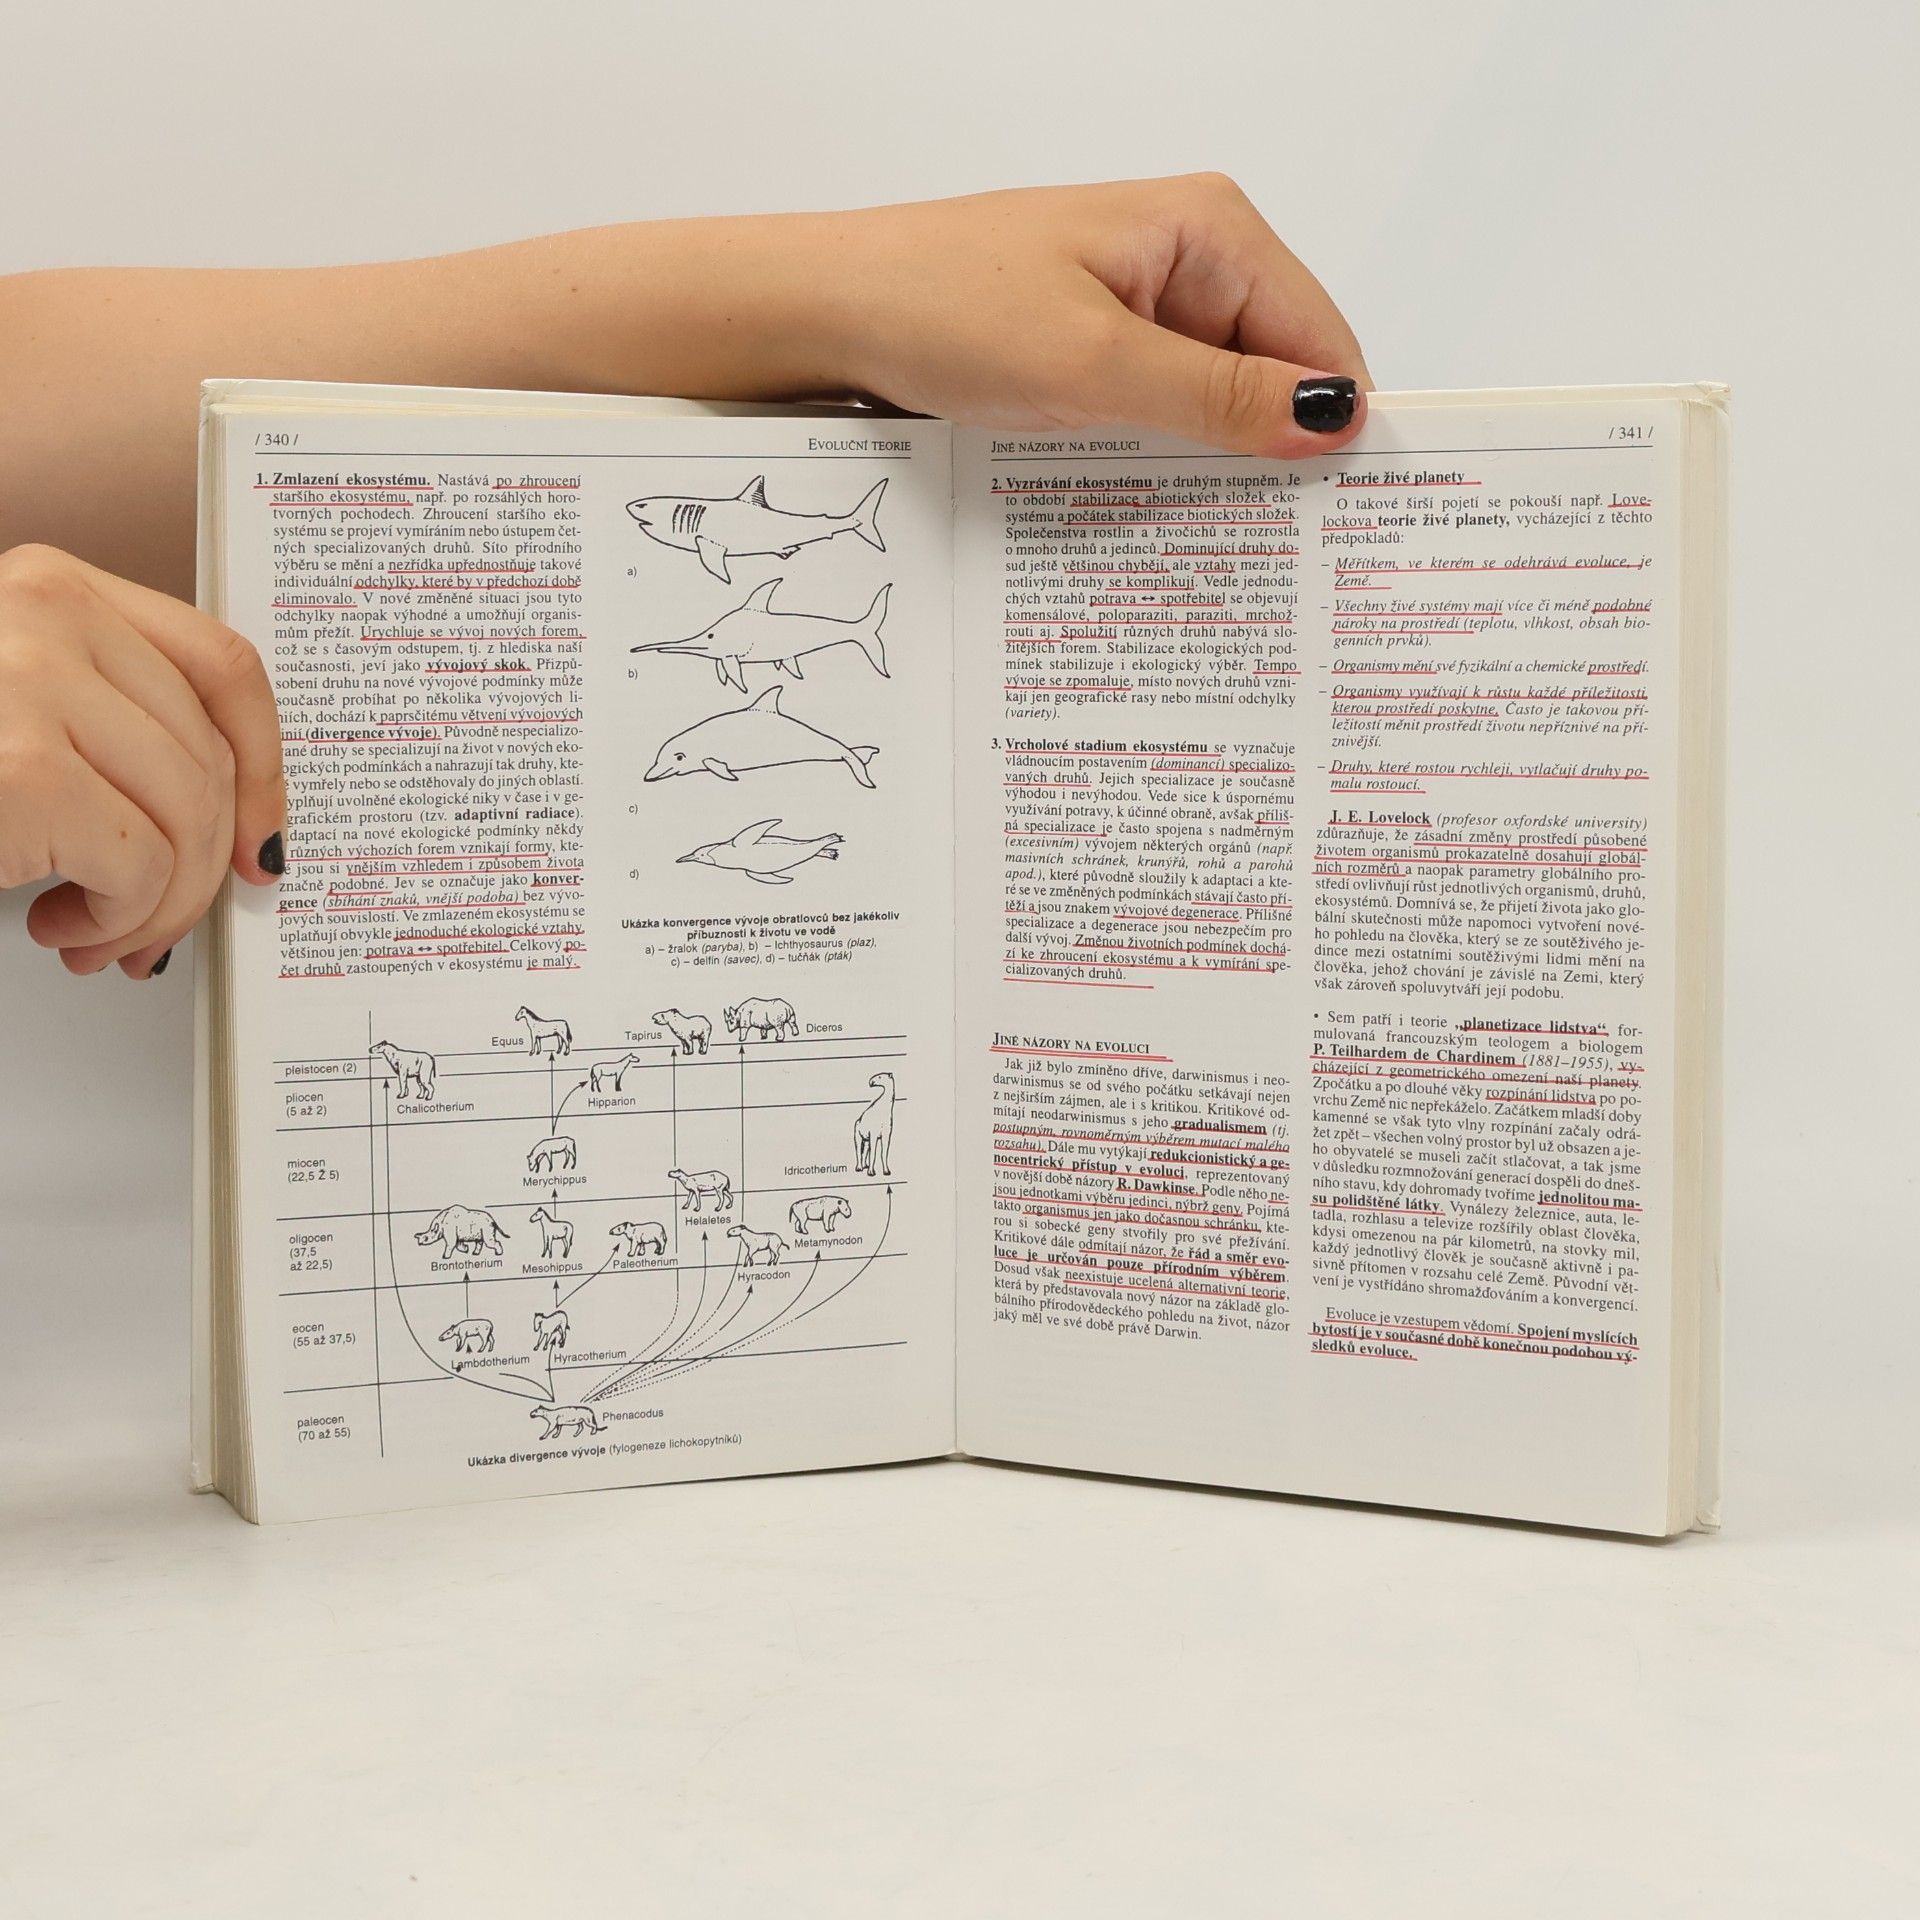 / 340 /
EVOLUČNÍ TEORIE
1. Zmlazení ekosystému. Nastává po zhroucení
staršího ekosystému, např. po rozsáhlých horo-
tvorných pochodech. Zhroucení staršího eko-
systému se projeví vymíráním nebo ústupem čet-
ných specializovaných druhů. Síto přírodního
výběru se mění a nezřídka upřednostňuje takové
individuální odchylky, které by v předchozí době
eliminovalo. V nové změněné situaci jsou tyto
odchylky naopak výhodné a umožňují organis-
mům přežít. Urychluje se vývoj nových forem,
což se s časovým odstupem, tj. z hlediska naší
současnosti, jeví jako vývojový skok. Přizpů-
sobení druhu na nové vývojové podmínky může
současně probíhat po několika vývojových li-
niích, dochází k paprsčitému větvení vývojových
linií (divergence vývoje). Původně nespecializo-
vané druhy se specializují na život v nových eko-
logických podmínkách a nahrazují tak druhy, kte-
vymřely nebo se odstěhovaly do jiných oblastí.
vyplňují uvolněné ekologické niky v čase i v ge-
ografickém prostoru (tzv. adaptivní radiace).
Adaptací na nové ekologické podmínky někdy
různých výchozích forem vznikají formy, kte-
jsou si vnějším vzhledem i způsobem života
značně podobné. Jev se označuje jako konver-
gence (sbíhání znaků, vnější podoba) bez vývo-
jových souvislostí. Ve zmlazeném ekosystému se
uplatňují obvykle jednoduché ekologické vztahy,
většinou jen: potrava ↔ spotřebitel. Celkový po-
čet druhů zastoupených v ekosystému je malý.
a)
b)
c)
d)
Ukázka konvergence vývoje obratlovců bez jakékoliv
příbuznosti k životu ve vodě
a) – žralok (paryba), b) – Ichthyosaurus (plaz),
c) – delfín (savec), d) – tučňák (pták)
Equus
Tapirus
Diceros
pleistocen (2)
pliocen
(5 až 2)
Chalicotherium
Hipparion
miocen
(22,5 Ž 5)
Merychippus
Idricotherium
Helaletes
oligocen
(37,5
až 22,5)
Brontotherium
Mesohippus
Paleotherium
Hyracodon
Metamynodon
eocen
(55 až 37,5)
Lambdotherium
Hyracotherium
paleocen
(70 až 55)
Phenacodus
Ukázka divergence vývoje (fylogeneze lichokopytníků)
JINÉ NÁZORY NA EVOLUCI
/ 341 /
2. Vyzrávání ekosystému je druhým stupněm. Je
to období stabilizace abiotických složek eko-
systému a počátek stabilizace biotických složek.
Společenstva rostlin a živočichů se rozrostla
o mnoho druhů a jedinců. Dominující druhy do-
sud ještě většinou chybějí, ale vztahy mezi jed-
notlivými druhy se komplikují. Vedle jednodu-
chých vztahů potrava ↔ spotřebitel se objevují
komensálové, poloparaziti, paraziti, mrchož-
routi aj. Spolužití různých druhů nabývá slo-
žitějších forem. Stabilizace ekologických pod-
mínek stabilizuje i ekologický výběr. Tempo
vývoje se zpomaluje, místo nových druhů vzni-
kají jen geografické rasy nebo místní odchylky
(variety).
3. Vrcholové stadium ekosystému se vyznačuje
vládnoucím postavením (dominancí) specializo-
vaných druhů. Jejich specializace je současně
výhodou i nevýhodou. Vede sice k úspornému
využívání potravy, k účinné obraně, avšak příliš-
ná specializace je často spojena s nadměrným
(excesivním) vývojem některých orgánů (např.
masivních schránek, krunýřů, rohů a parohů
apod.), které původně sloužily k adaptaci a kte-
ré se ve změněných podmínkách stávají často pří-
těží a jsou znakem vývojové degenerace. Přílišné
specializace a degenerace jsou nebezpečím pro
další vývoj. Změnou životních podmínek dochá-
zí ke zhroucení ekosystému a k vymírání spe-
cializovaných druhů.
JINÉ NÁZORY NA EVOLUCI
Jak již bylo zmíněno dříve, darwinismus i neo-
darwinismus se od svého počátku setkávají nejen
z nejširším zájmen, ale i s kritikou. Kritikové od-
mítají neodarwinismus s jeho gradualismem (tj.
postupným, rovnoměrným výběrem mutací malého
rozsahu). Dále mu vytýkají redukcionistický a ge-
nocentrický přístup v evoluci, reprezentovaný
v novější době názory R. Dawkinse. Podle něho ne-
jsou jednotkami výběru jedinci, nýbrž geny. Pojímá
takto organismus jen jako dočasnou schránku, kte-
rou si sobecké geny stvořily pro své přežívání.
Kritikové dále odmítají názor, že řád a směr evo-
luce je určován pouze přírodním výběrem.
Dosud však neexistuje ucelená alternativní teorie,
která by představovala nový názor na základě glo-
bálního přírodovědeckého pohledu na život, názor
jaký měl ve své době právě Darwin.
• Teorie živé planety
O takové širší pojetí se pokouší např. Love-
lockova teorie živé planety, vycházející z těchto
předpokladů:
– Měřítkem, ve kterém se odehrává evoluce, je
Země.
– Všechny živé systémy mají více či méně podobné
nároky na prostředí (teplotu, vlhkost, obsah bio-
genních prvků).
– Organismy mění své fyzikální a chemické prostředí.
– Organismy využívají k růstu každé příležitosti,
kterou prostředí poskytne. Často je takovou pří-
ležitostí měnit prostředí životu nepříznivé na pří-
znivější.
– Druhy, které rostou rychleji, vytlačují druhy po-
malu rostoucí.
J. E. Lovelock (profesor oxfordské university)
zdůrazňuje, že zásadní změny prostředí působené
životem organismů prokazatelně dosahují globál-
ních rozměrů a naopak parametry globálního pro-
středí ovlivňují růst jednotlivých organismů, druhů,
ekosystémů. Domnívá se, že přijetí života jako glo-
bální skutečnosti může napomoci vytvoření nové-
ho pohledu na člověka, který se ze soutěživého je-
dince mezi ostatními soutěživými lidmi mění na
člověka, jehož chování je závislé na Zemi, který
však zároveň spoluvytváří její podobu.
• Sem patří i teorie „planetizace lidstva“, for-
mulovaná francouzským teologem a biologem
P. Teilhardem de Chardinem (1881–1955), vy-
cházející z geometrického omezení naší planety.
Zpočátku a po dlouhé věky rozpínání lidstva po po-
vrchu Země nic nepřekáželo. Začátkem mladší doby
kamenné se však tyto vlny rozpínání začaly odrá-
žet zpět – všechen volný prostor byl už obsazen a je-
ho obyvatelé se museli začít stlačovat, a tak jsme
v důsledku rozmnožování generací dospěli do dneš-
ního stavu, kdy dohromady tvoříme jednolitou ma-
su polidštěné látky. Vynálezy železnice, auta, le-
tadla, rozhlasu a televize rozšířily oblast člověka,
kdysi omezenou na pár kilometrů, na stovky mil,
každý jednotlivý člověk je současně aktivně i pa-
sivně přítomen v rozsahu celé Země. Původní vět-
vení je vystřídáno shromažďováním a konvergencí.
Evoluce je vzestupem vědomí. Spojení myslících
bytostí je v současné době konečnou podobou vý-
sledků evoluce.